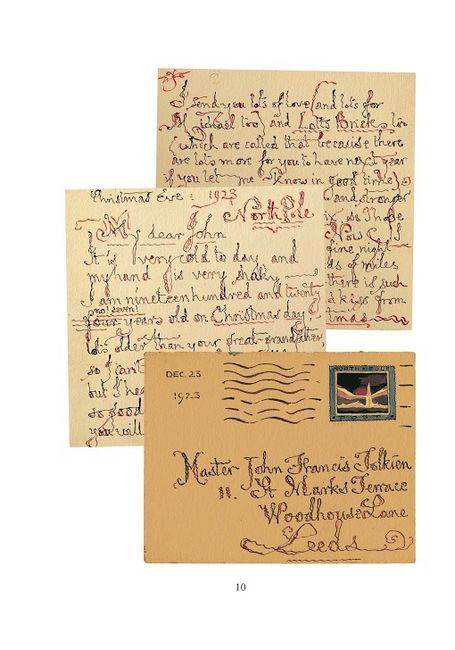 2
I send you lots of love (and lots for
Michael too) and Lotts Bricks too
(which are called that because there
are lots more for you to have next year
if you let me know in good time)
and stronger
ix. So I hope
Now I
fine night
ds of miles
there is such
d kiss from
tmas
Christmas Eve : 1923
North Pole
My dear John
It is very cold to day and
my hand is very shaky —
I am nineteen hundred and twenty
no! seven!
four years old on Christmas day,
lots older than your great-grandfather,
so I can't
but I hea
so good
you will
DEC. 23
1923
Master John Francis Tolkien
11. St Marks Terrace
Woodhouse Lane
Leeds
10